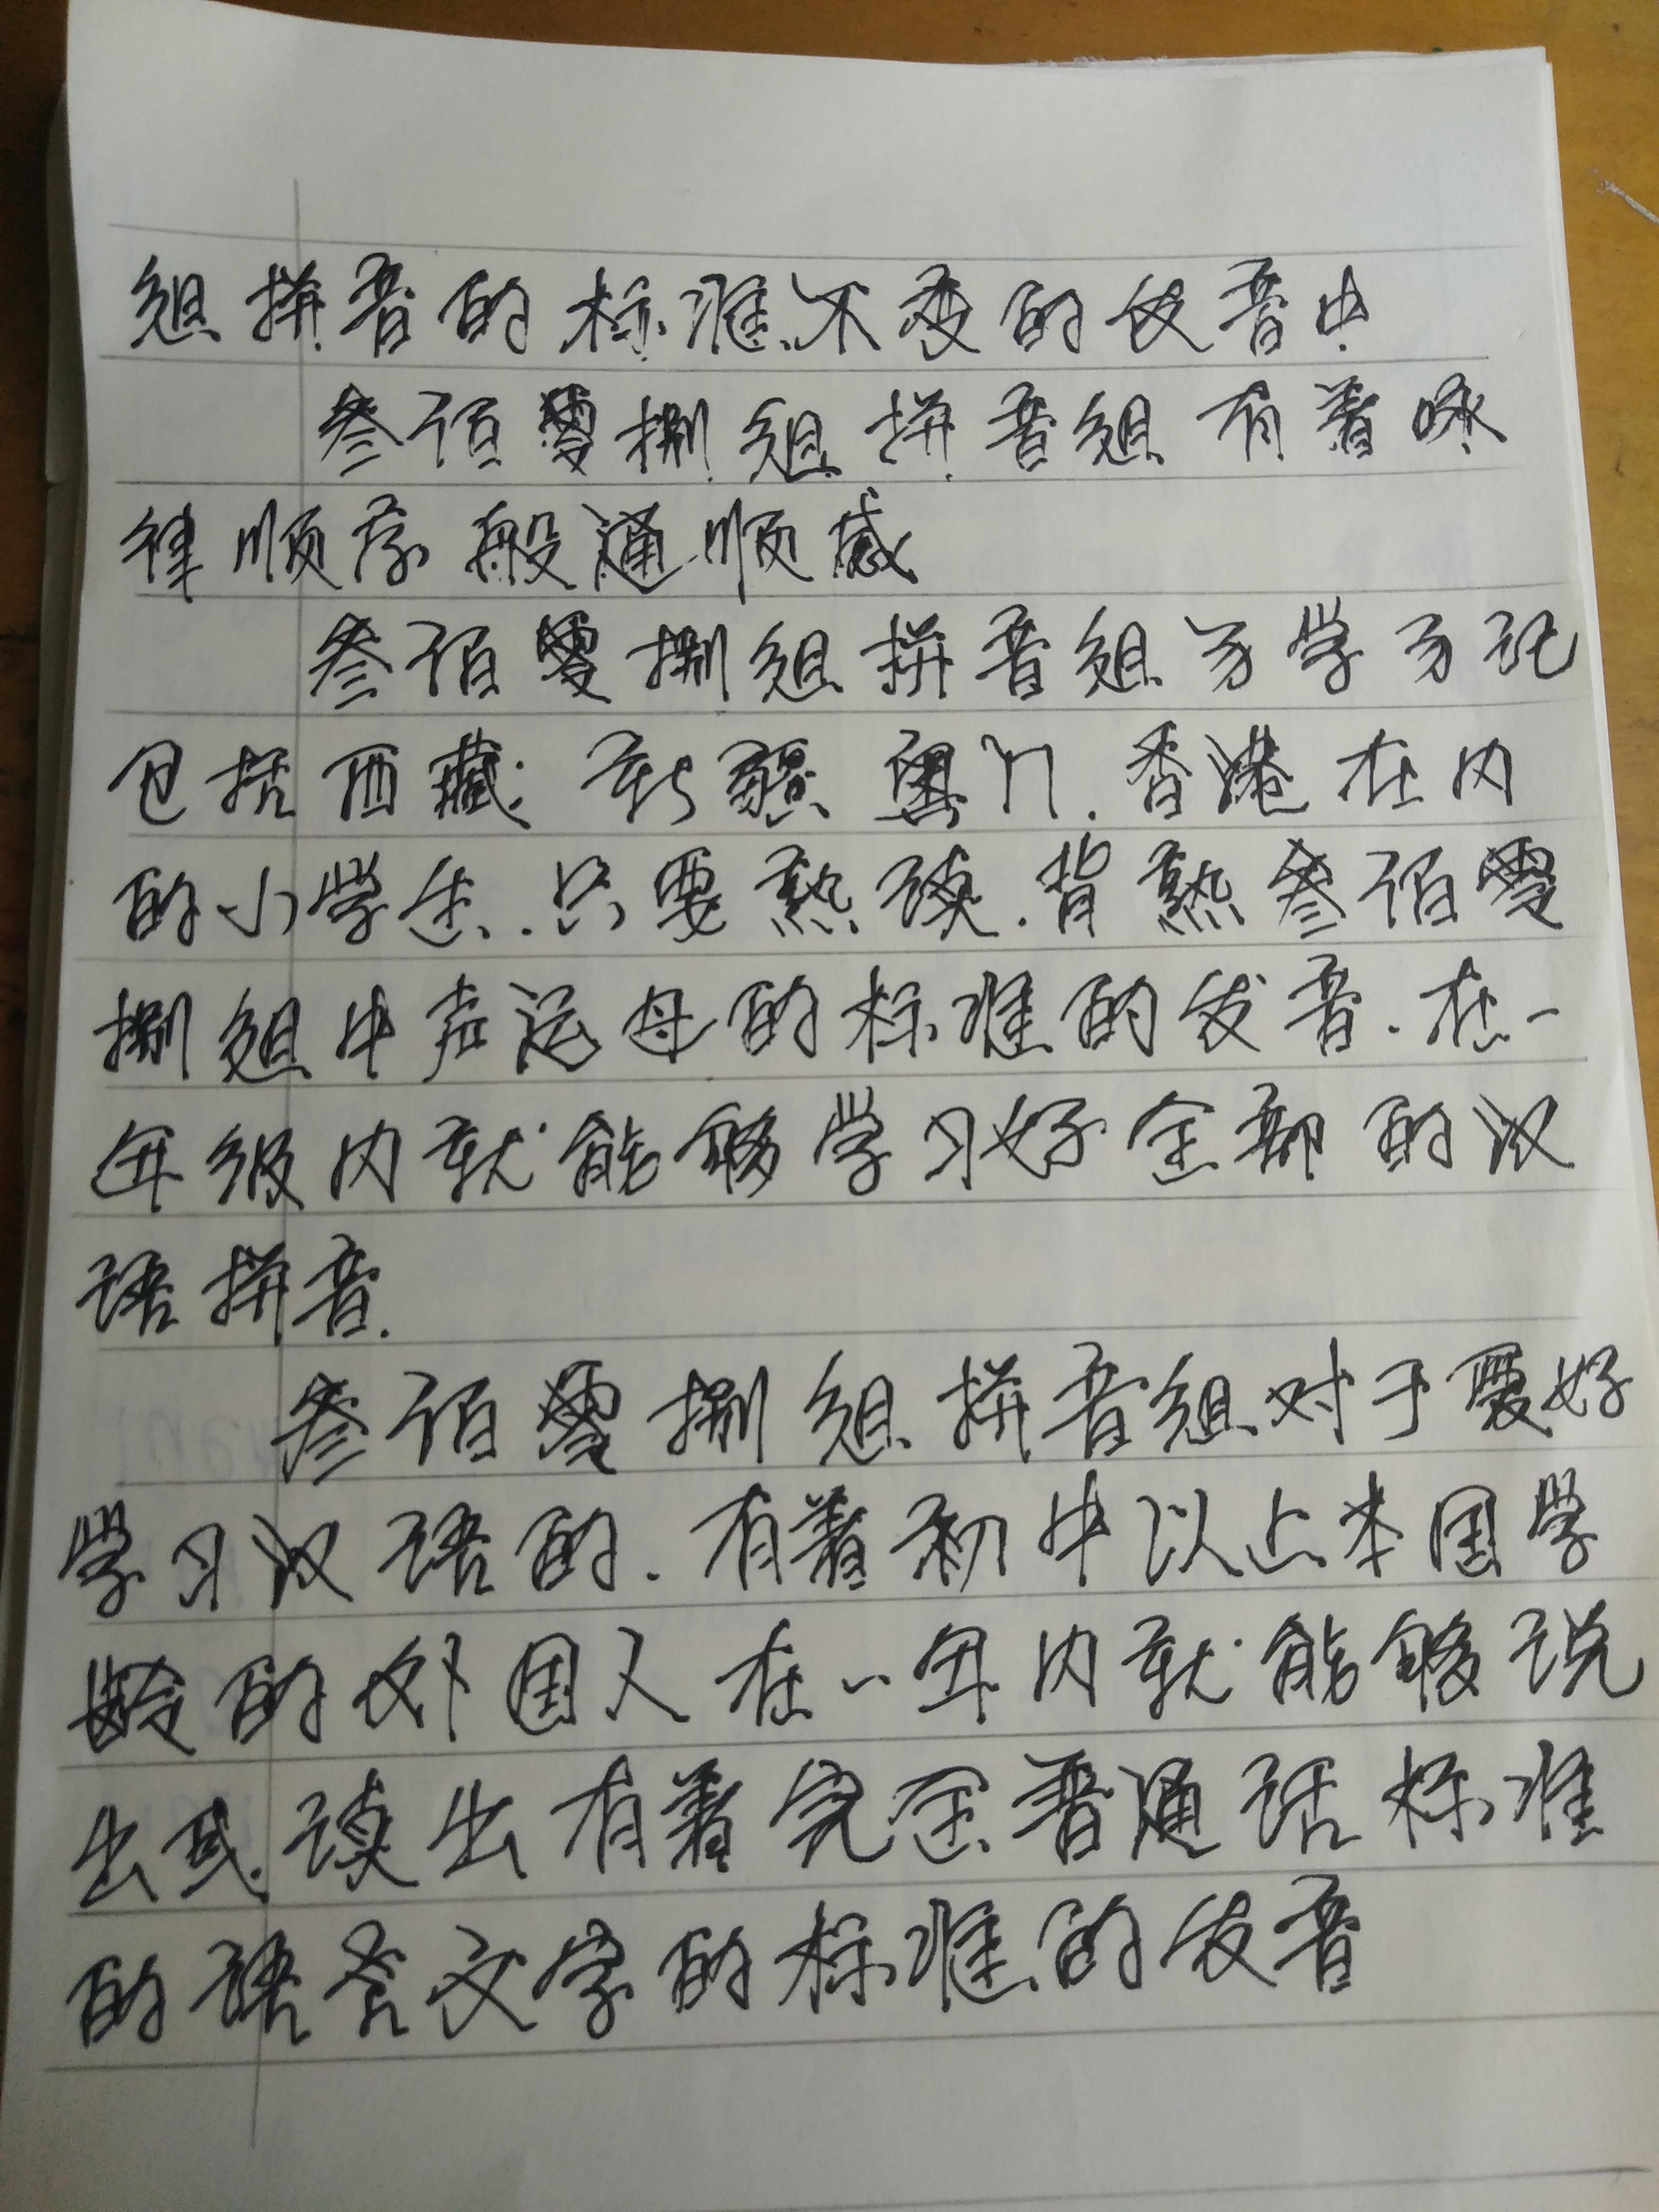 组拼音的标准不变的发音中
叁佰零捌组拼音组有着咏
律顺序般通顺感
叁佰零捌组拼音组易学易记
包括西藏.新疆奥门.香港在内
的小学生.只要熟读.背熟叁佰零
捌组中声运母的标准的发音.在一
年级内就能够学习好全部的汉
语拼音.
叁佰零捌组拼音组对于要好
学习汉语的.有着初中以上本国学
龄的外国人在一年内就能够说
出或读出有着完全普通话标准
的语言文字的标准的发音